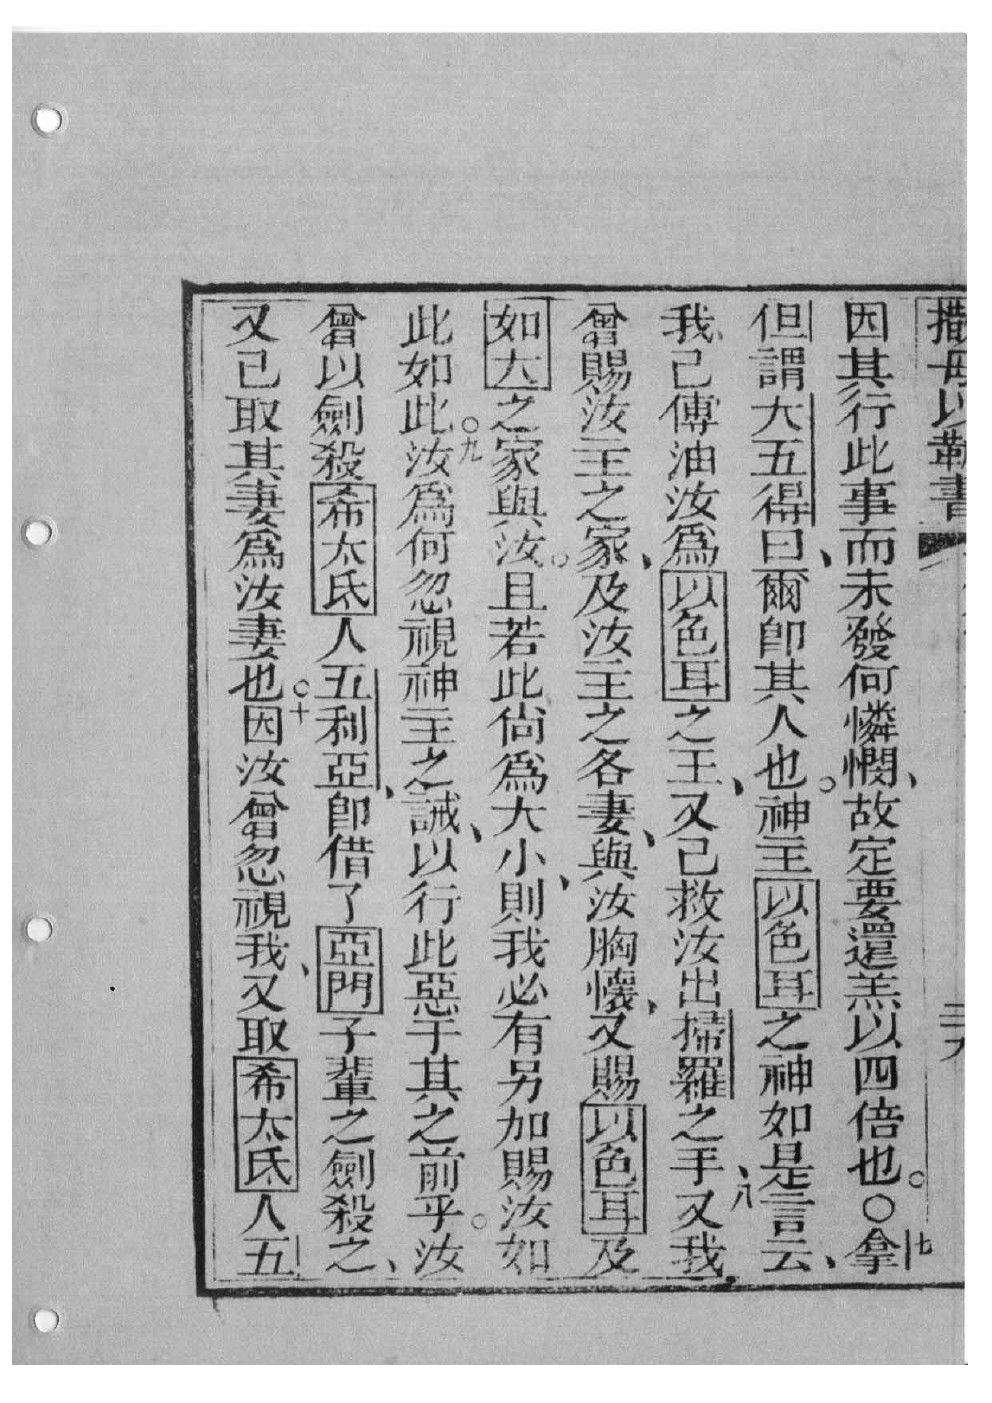 撒母以勒書
三九
因其行此事而未發何憐憫、故定要還羔以四倍也。○七拿
但謂大五得曰、爾卽其人也。神主以色耳之神如是言云、
我已傅油汝爲以色耳之王、又已救汝出掃羅之手、八又我
曾賜汝主之家、及汝主之各妻、與汝胸懷、又賜以色耳及
如大之家與汝。且若此尙爲大小、則我必有另加賜汝如
此如此。九汝爲何忽視神主之誡、以行此惡于其之前乎。汝
曾以劍殺希太氐人五利亞、卽借了亞門子輩之劍殺之、
又已取其妻爲汝妻也。十因汝曾忽視我、又取希太氐人五